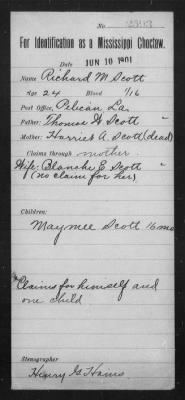 For Identification as a Mississippi Choctaw.
Date JUN 10 1901
Name Richard M. Scott
Age 24 Blood 1/16
Post Office, Pelican La.
Father: Thomas W Scott "
Mother: Harriet A. Scott (dead)
Claims through mother.
Wife: Blanche E Scott "
(no claim for her)
Children:
Maymee Scott 16 mo
Claims for himself and
one child
Stenographer
Henry G. Hains